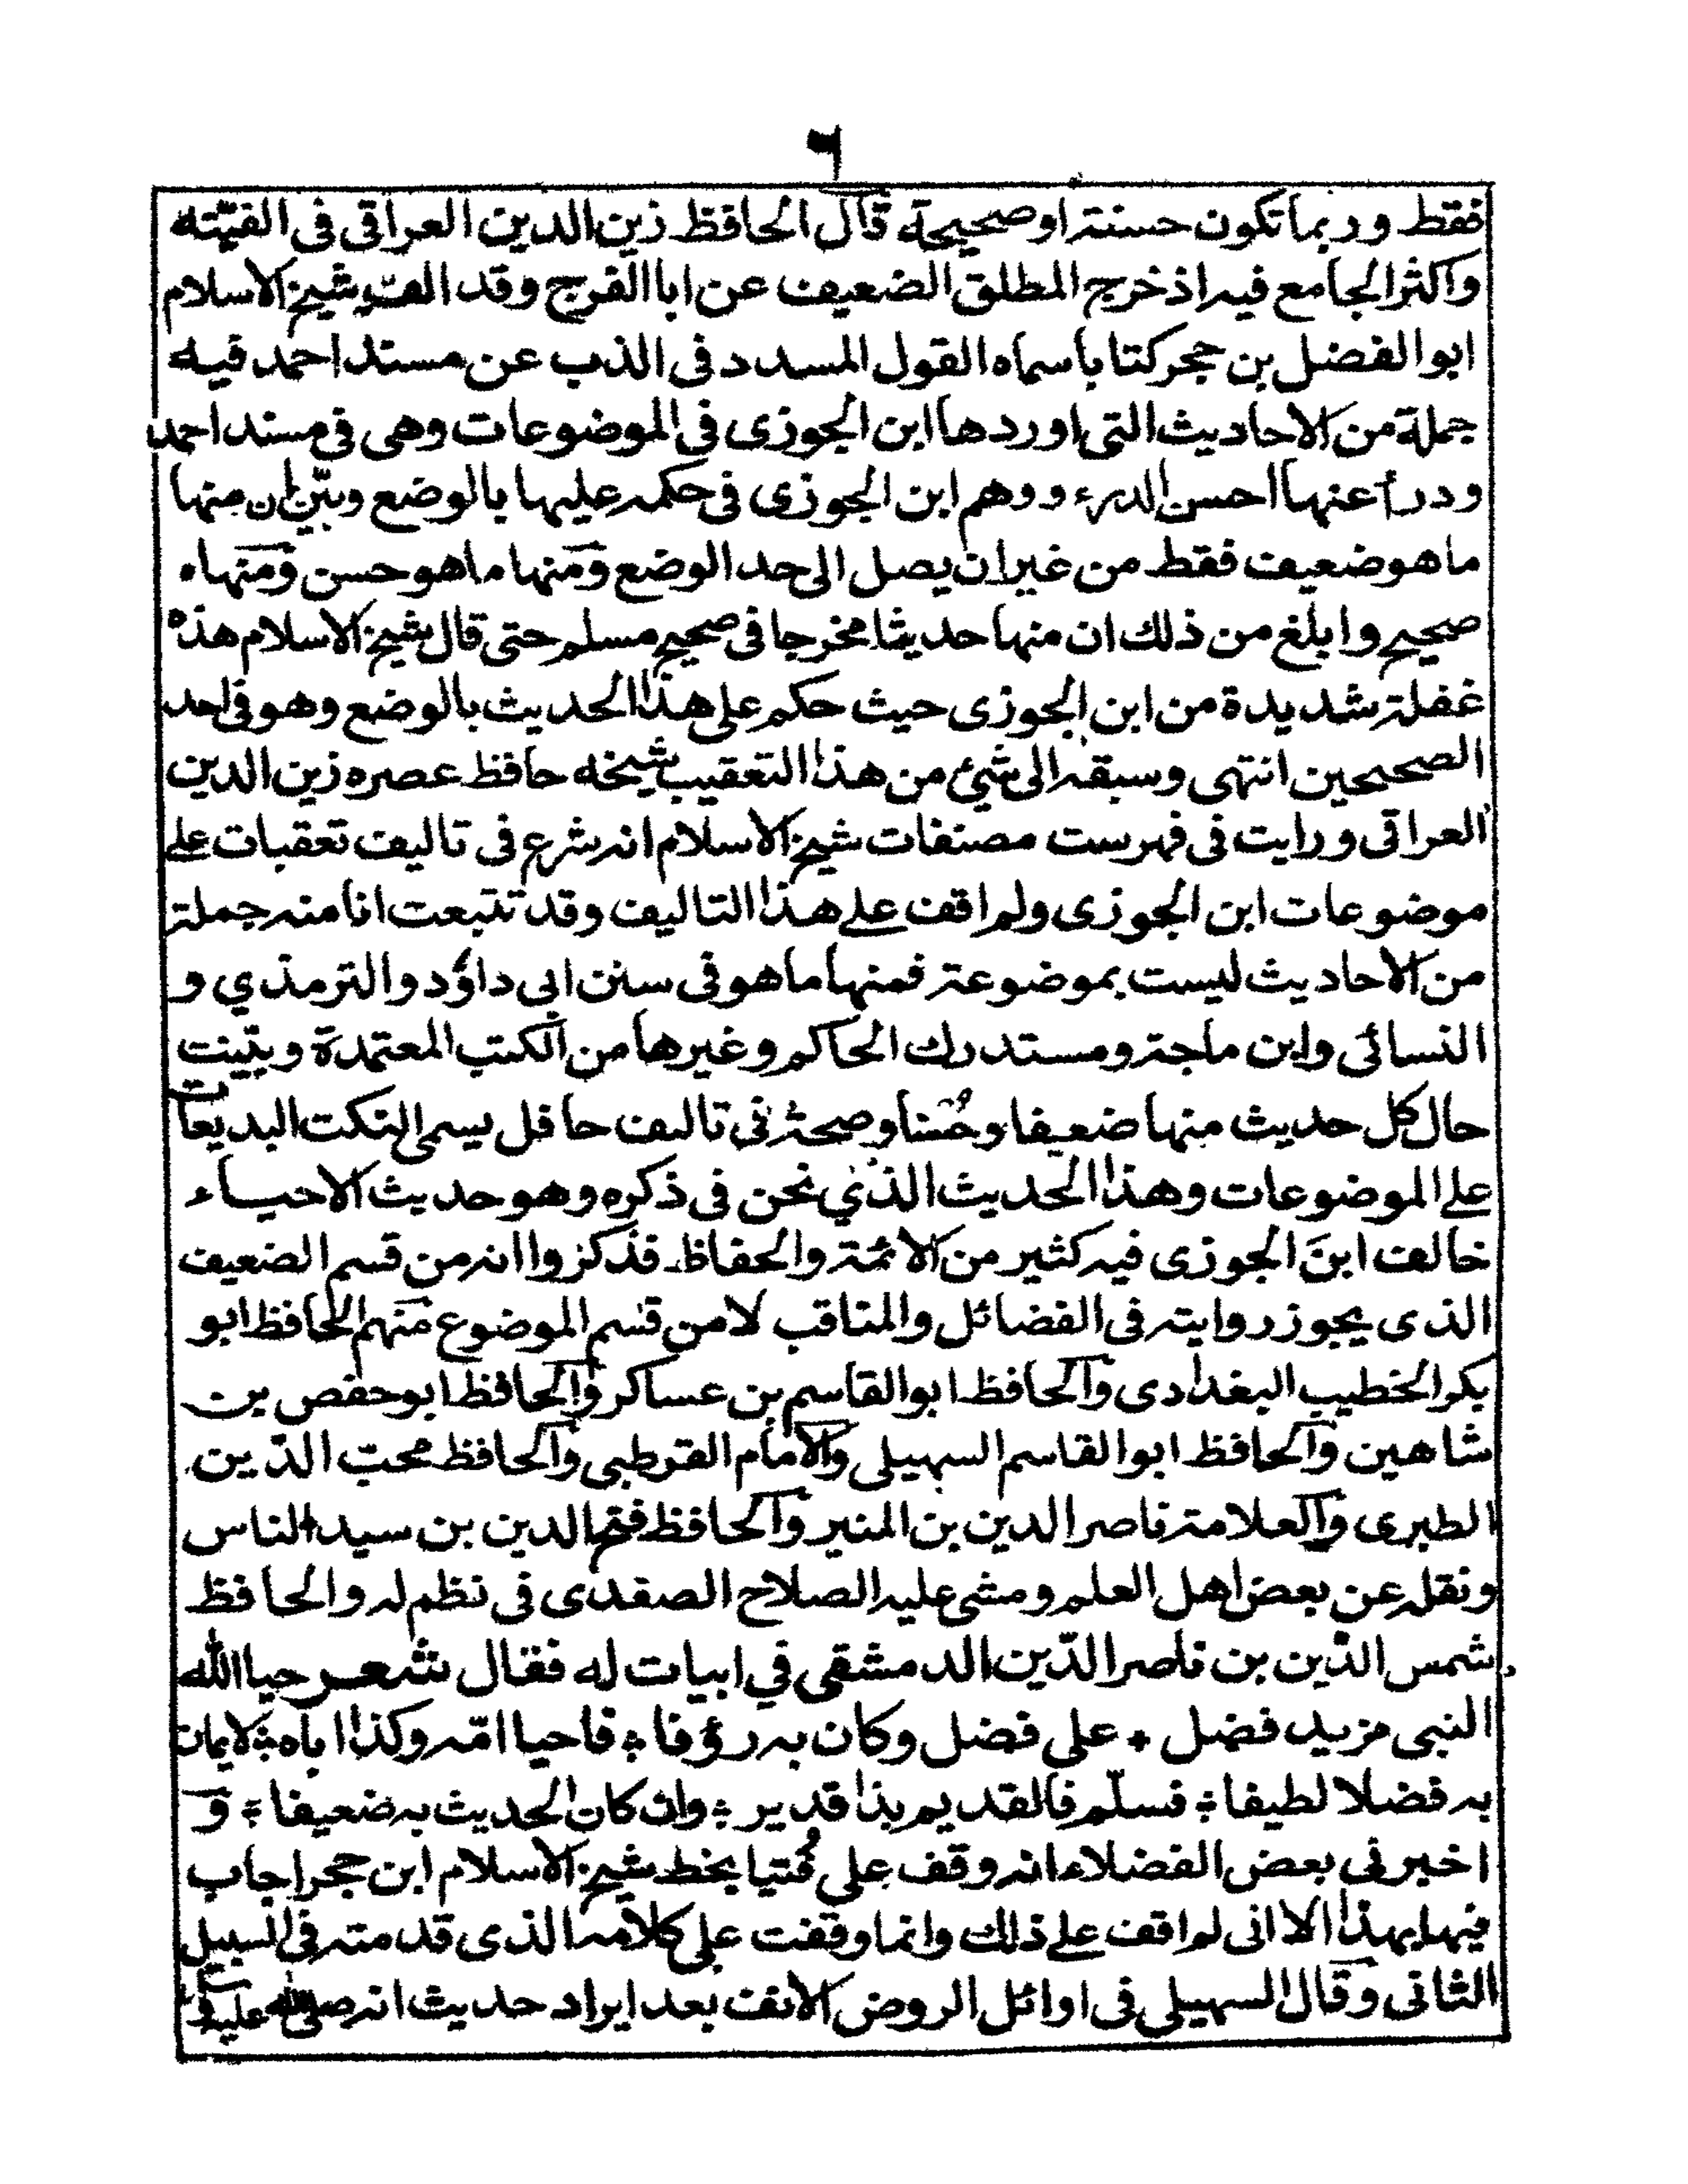 ٦
فقط وربما تكون حسنة او صحيحة قال الحافظ زين الدين العراقى فى الفيّته
واكثر الجامع فيه اذ خرج المطلق الضعيف عن ابا الفرج وقد الف شيخ الاسلام
ابو الفضل بن حجر كتابا سماه القول المسدد فى الذب عن مسند احمد فيه
جملة من الاحاديث التى اوردها ابن الجوزى فى الموضوعات وهى فى مسند احمد
ودرأ عنها احسن الدرء ووهم ابن الجوزى فى حكمه عليها بالوضع وبيّن ان منها
ما هو ضعيف فقط من غير ان يصل الى حد الوضع ومنها ما هو حسن ومنها
صحيح وابلغ من ذلك ان منها حديثا مخرجا فى صحيح مسلم حتى قال شيخ الاسلام هذه
غفلة شديدة من ابن الجوزى حيث حكم على هذا الحديث بالوضع وهو فى احد
الصحيحين انتهى وسبقه الى شئ من هذا التعقيب شيخه حافظ عصره زين الدين
العراقى ورايت فى فهرست مصنفات شيخ الاسلام انه شرع فى تاليف تعقبات على
موضوعات ابن الجوزى ولم اقف على هذا التاليف وقد تتبعت انا منه جملة
من الاحاديث ليست بموضوعة فمنها ما هو فى سنن ابى داؤد والترمذي و
النسائى وابن ماجة ومستدرك الحاكم وغيرها من الكتب المعتمدة وبيّنت
حال كل حديث منها ضعيفا وحُسنا وصحة فى تاليف حافل يسمى النكت البديعات
على الموضوعات وهذا الحديث الذي نحن فى ذكره وهو حديث الاحياء
خالف ابنَ الجوزى فيه كثير من الائمة والحفاظ فذكروا انه من قسم الضعيف
الذى يجوز روايته فى الفضائل والمناقب لا من قسم الموضوع منهم الحافظ ابو
بكر الخطيب البغدادى والحافظ ابو القاسم بن عساكر والحافظ ابو حفص بن
شاهين والحافظ ابو القاسم السهيلى والامام القرطبى والحافظ محبّ الدّين
الطبرى والعلامة ناصر الدين بن المنير والحافظ فتح الدين بن سيد الناس
ونقله عن بعض اهل العلم ومشى عليه الصلاح الصفدى فى نظم له والحافظ
شمس الدّين بن ناصر الدّين الدمشقى في ابيات له فقال شعر حبا الله
النبى مزيد فضل ؞ على فضل وكان به رؤفا ؞ فاحيا امّه وكذا اباه ؞ لايمان
به فضلا لطيفا ؞ فسلّم فالقديم بذا قدير ؞ وان كان الحديث به ضعيفا ؞ و
اخبرنى بعض الفضلاء انه وقف على فُتيا بخط شيخ الاسلام ابن حجر اجاب
فيها بهذا الا انى لم اقف على ذلك وانما وقفت على كلامه الذى قدمته فى السبيل
الثانى وقال السهيلى فى اوائل الروض الانف بعد ايراد حديث انه صلى الله عليه